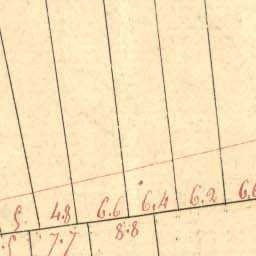 5. 4.8 6.6 6.4 6.2 6.6
.5 7.7 8.8